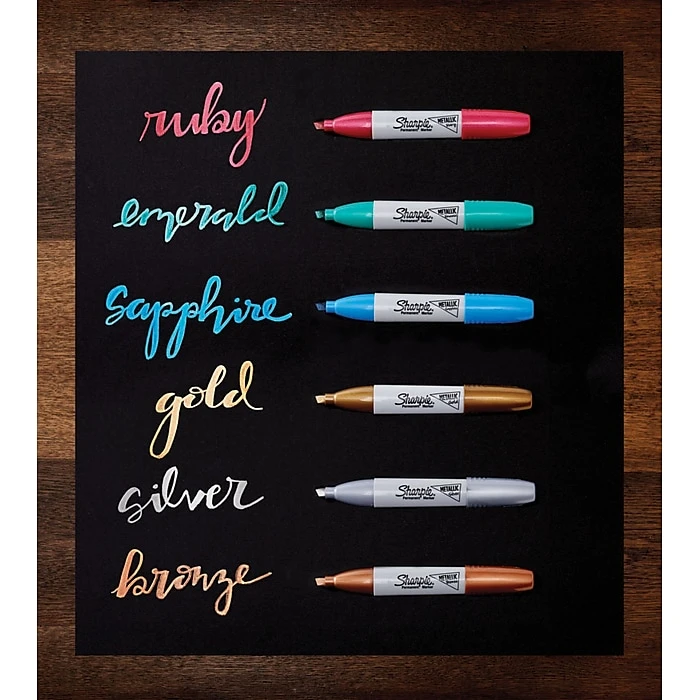 ruby
Sharpie
Permanent Marker
METALLIC
Ruby
emerald
Sharpie
Permanent Marker
METALLIC
Emerald
sapphire
Sharpie
Permanent Marker
METALLIC
Sapphire
gold
Sharpie
Permanent Marker
METALLIC
Gold
silver
Sharpie
Permanent Marker
METALLIC
Silver
bronze
Sharpie
Permanent Marker
METALLIC
Bronze